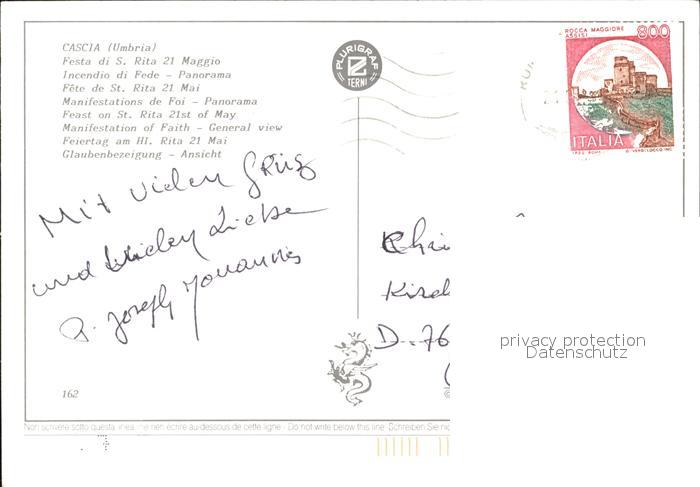 CASCIA (Umbria)
Festa di S. Rita 21 Maggio
Incendio di Fede - Panorama
Fête de St. Rita 21 Mai
Manifestations de Foi - Panorama
Feast on St. Rita 21st of May
Manifestation of Faith - General view
Feiertag am HI. Rita 21 Mai
Glaubenbezeigung - Ansicht
PLURIGRAF
TERNI
ROCCA MAGGIORE 800
ASSISI
ITALIA
Mit vielen Grüß
und Liebe
P. Joseph Johannes
Chri
Kirch
D-76
privacy protection
Datenschutz
162
Non scrivere sotto questa linea ne rien écrire au-dessous de cette ligne - Do not write below this line Schreiben Sie nic